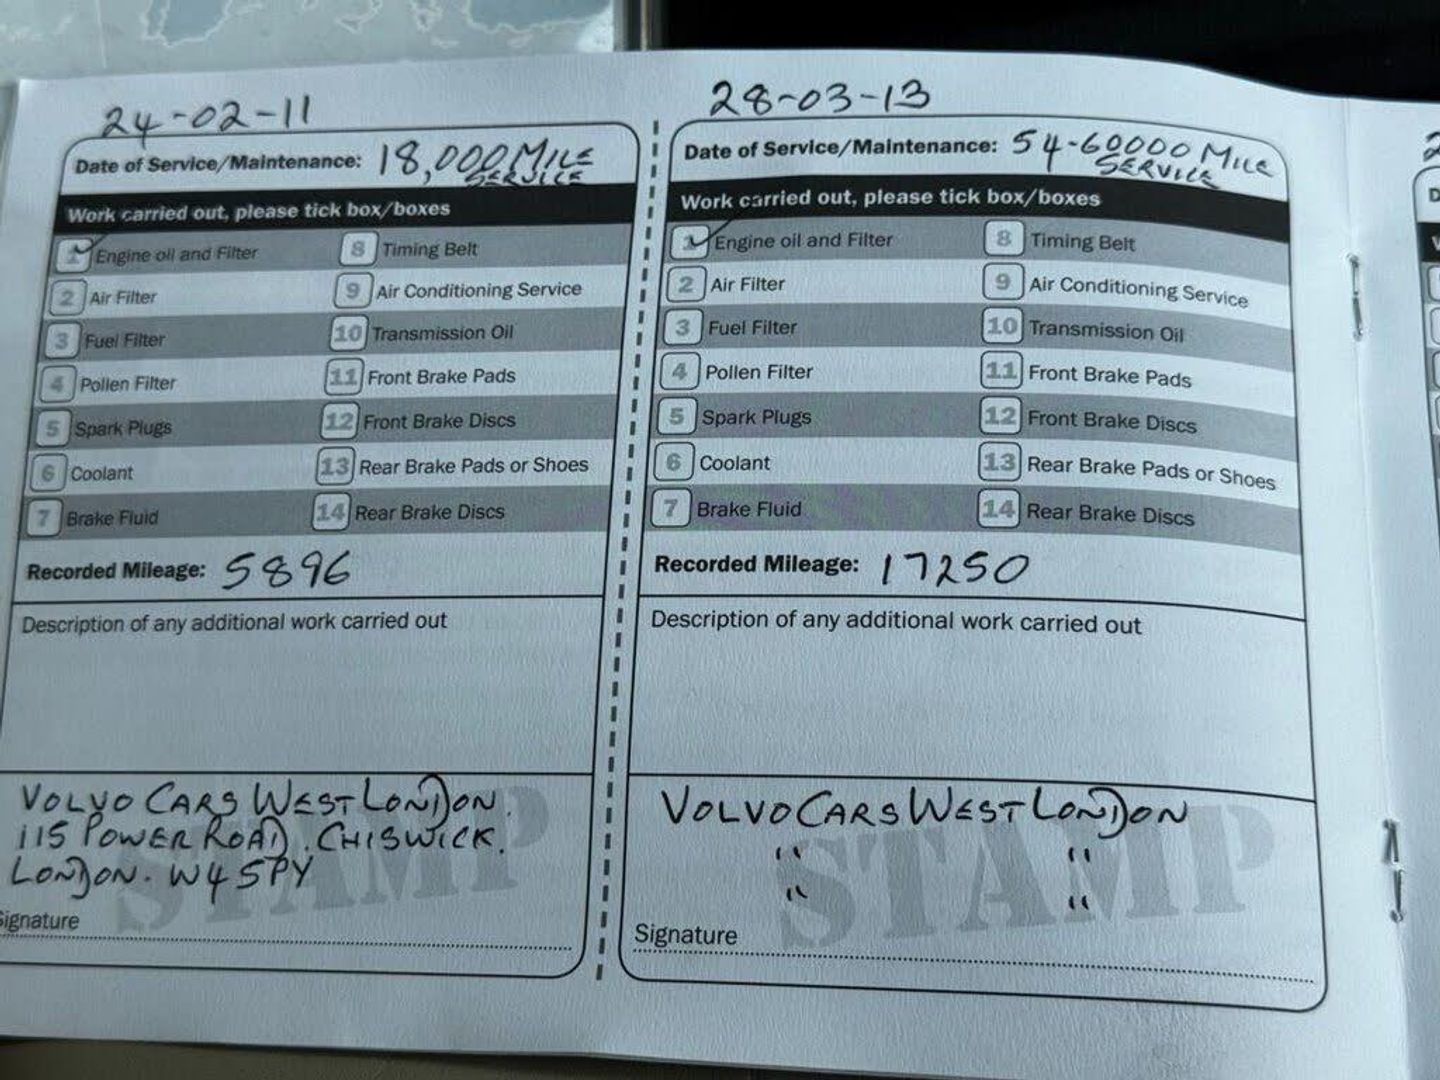 24-02-11
Date of Service/Maintenance: 18,000 MILE
SERVICE
Work carried out, please tick box/boxes
1 Engine oil and Filter
2 Air Filter
3 Fuel Filter
4 Pollen Filter
5 Spark Plugs
6 Coolant
7 Brake Fluid
8 Timing Belt
9 Air Conditioning Service
10 Transmission Oil
11 Front Brake Pads
12 Front Brake Discs
13 Rear Brake Pads or Shoes
14 Rear Brake Discs
Recorded Mileage: 5896
Description of any additional work carried out
VOLVO CARS WEST LONDON.
115 POWER ROAD. CHISWICK.
LONDON. W4 5PY
STAMP
Signature
28-03-13
Date of Service/Maintenance: 54-60000 MILE
SERVICE
Work carried out, please tick box/boxes
1 Engine oil and Filter
2 Air Filter
3 Fuel Filter
4 Pollen Filter
5 Spark Plugs
6 Coolant
7 Brake Fluid
8 Timing Belt
9 Air Conditioning Service
10 Transmission Oil
11 Front Brake Pads
12 Front Brake Discs
13 Rear Brake Pads or Shoes
14 Rear Brake Discs
Recorded Mileage: 17250
Description of any additional work carried out
VOLVO CARS WEST LONDON
" "
" "
STAMP
Signature